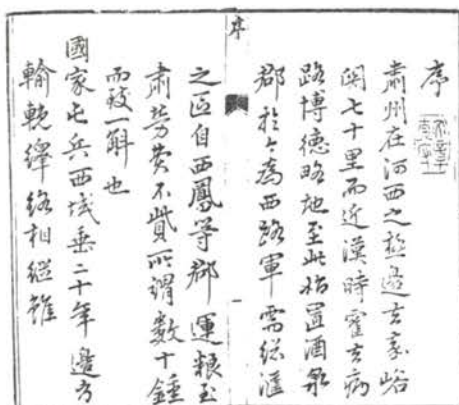 序
肅州在河西之極邊去嘉峪
關七十里而近漢時霍去病
路博德略地至此始置酒泉
郡於今為西路軍需總滙
序
一
之區自西鳳等郡運糧至
肅勞費不貲所謂數十鍾
而致一斛也
國家屯兵西域垂二十年邉方
輸輓繹絡相繼雖